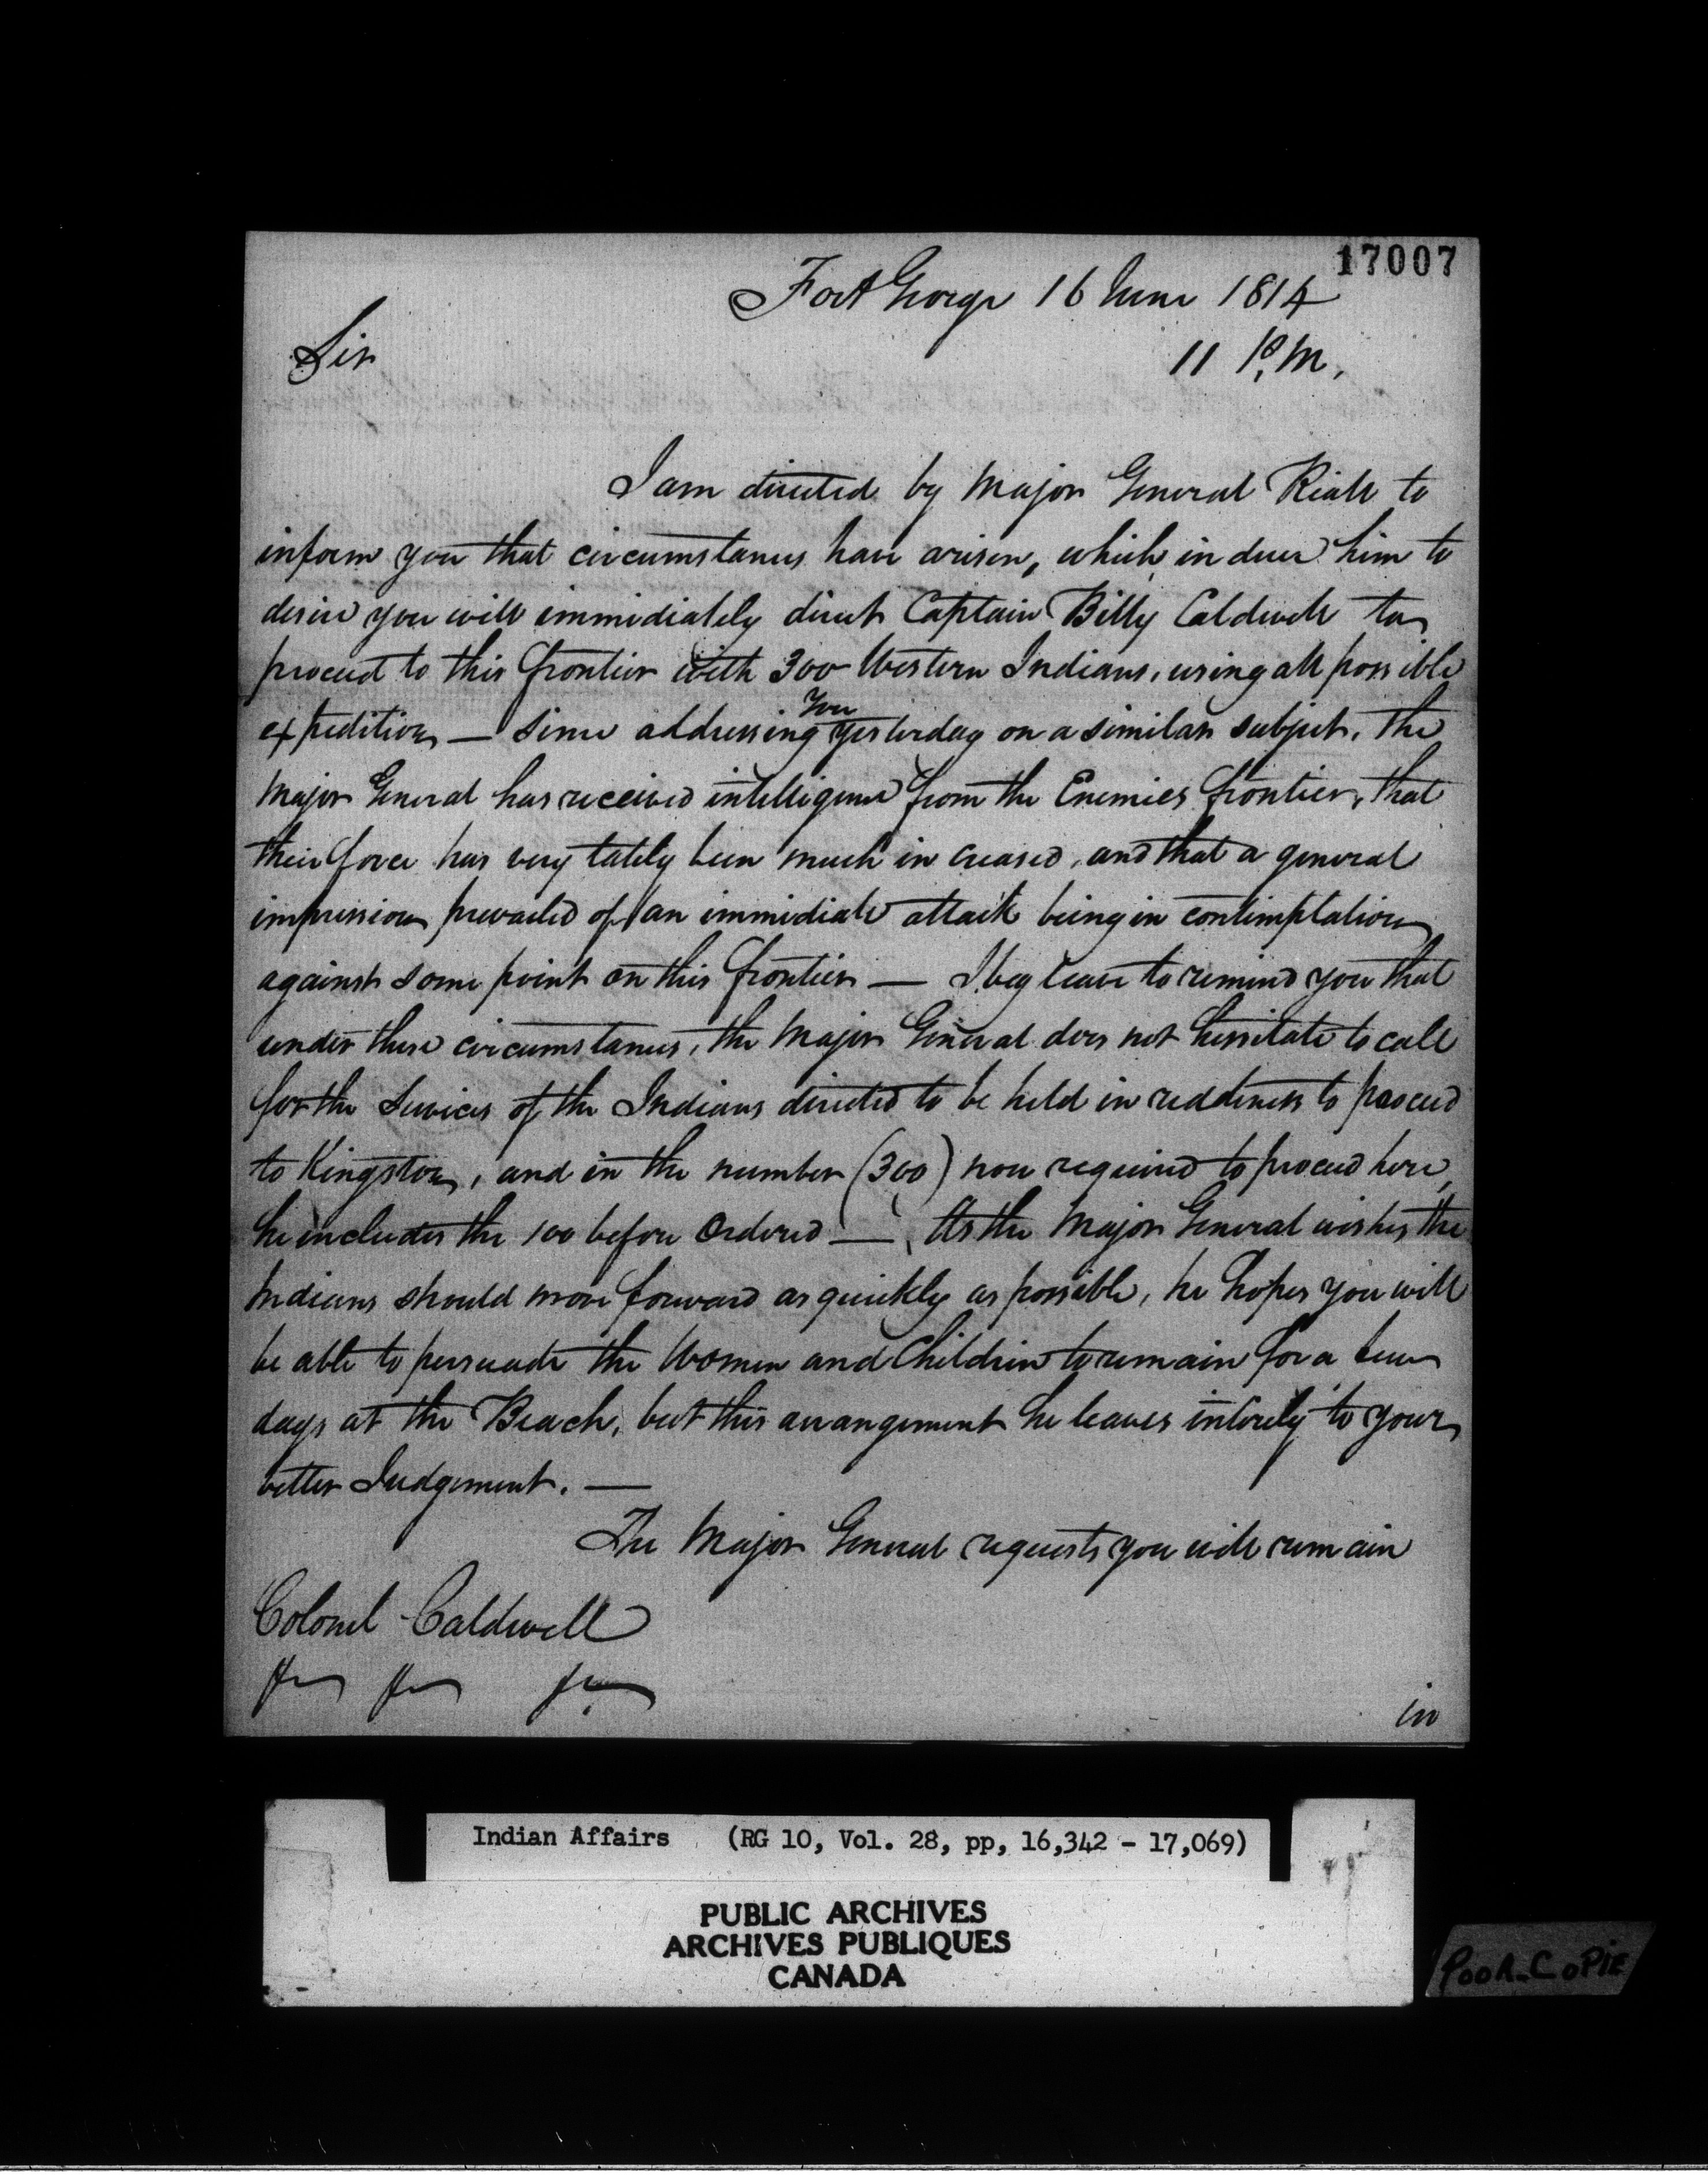 17007
Fort George 16 June 1814
Sir
11 P.M.
I am directed by Major General Riall to
inform you that circumstances have arisen, which induce him to
desire you will immidiately direct Captain Billy Caldwell to
proceed to this frontier with 300 Western Indians, using all possible
expedition — Since addressing You yesterday on a similar subject, the
Major General has received intelligence from the Enemies frontier, that
their force has very lately been much increased, and that a general
impression prevailed of an immidiate attack being in contimplation
against some point on this frontier — I beg leave to remind you that
under these circumstances, the Major General does not hessitate to call
for the Services of the Indians directed to be held in reddiness to proceed
to Kingston, and in the number (300) now required to proceed here,
he includes the 100 before Ordered — As the Major General wishes the
Indians should move forward as quickly as possible, he hopes you will
be able to persuade the Women and Children to remain for a few
days at the Beach, but this arrangement he leaves intirely to your
better Judgement. —
The Major General requests you will remain
Colonel Caldwell
in
Indian Affairs (RG 10, Vol. 28, pp, 16,342 - 17,069)
PUBLIC ARCHIVES
ARCHIVES PUBLIQUES
CANADA
POOR COPIE